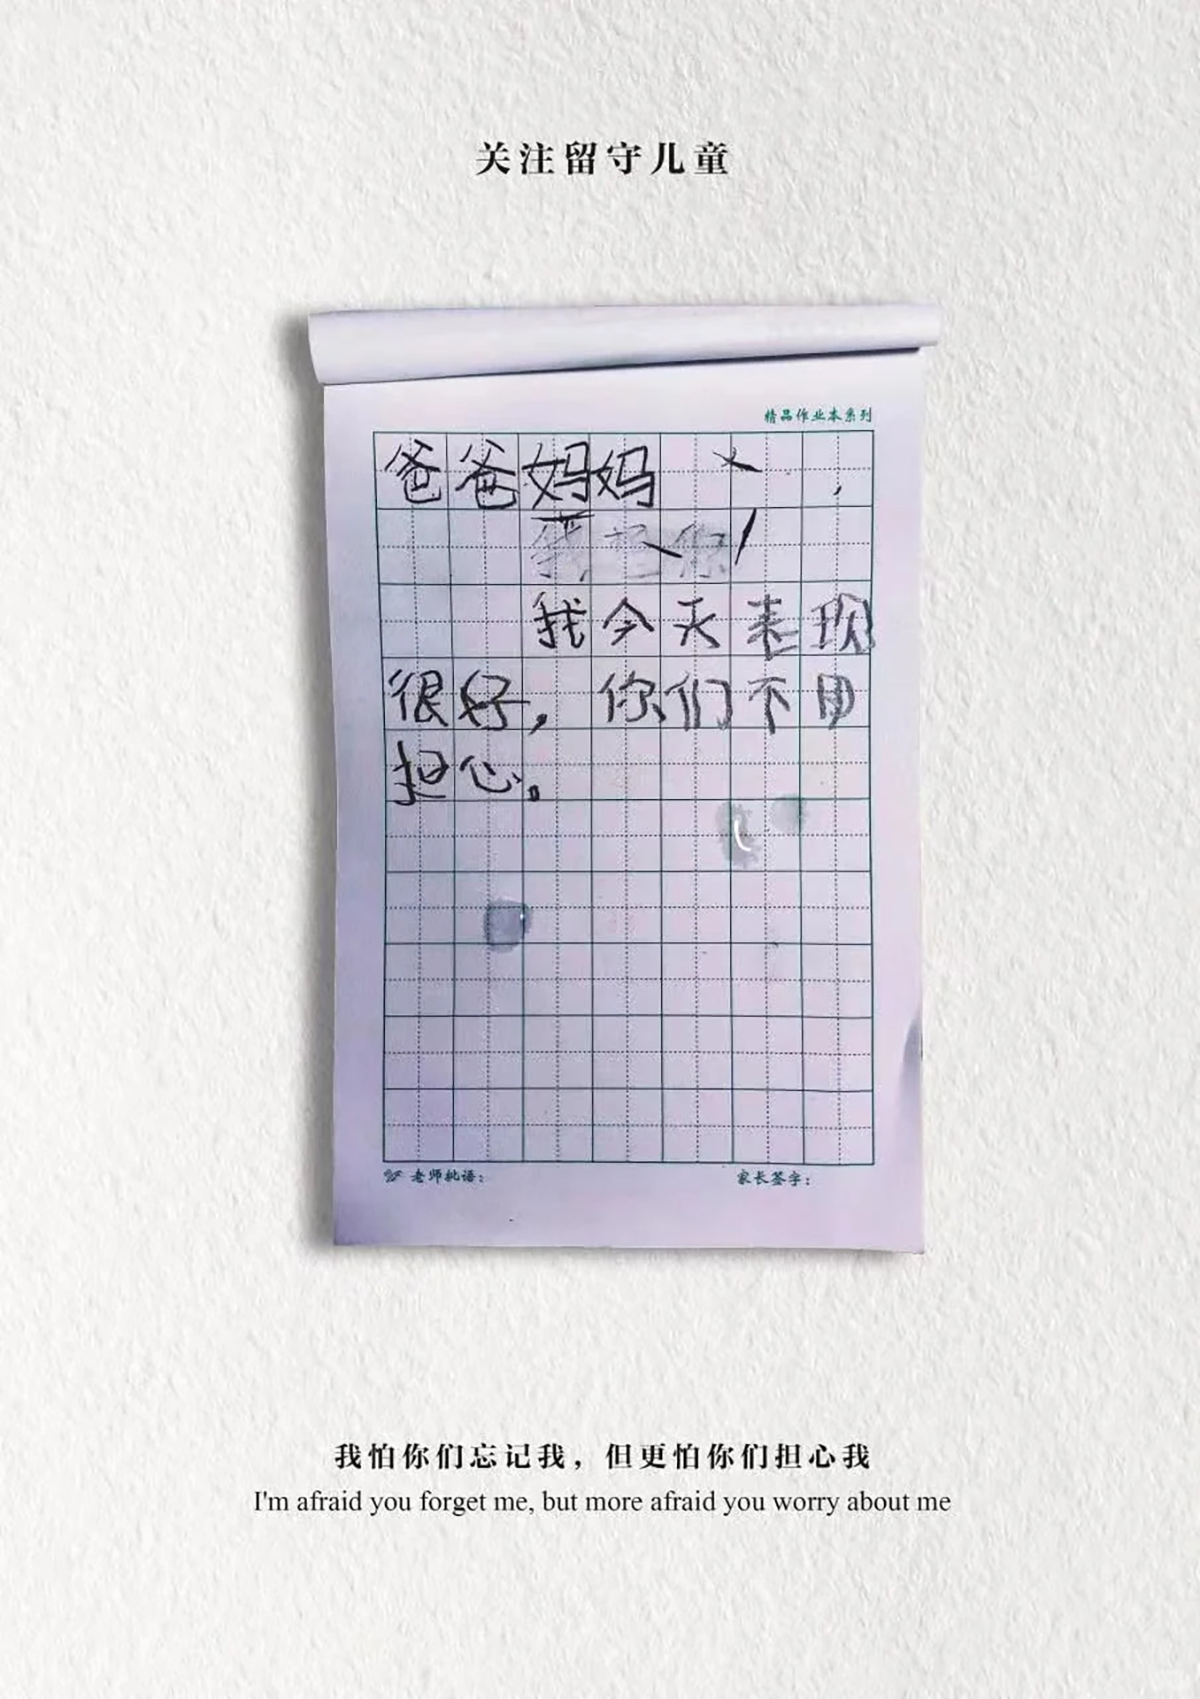 关注留守儿童
精品作业本系列
爸爸妈妈
我想你
我今天表现
很好，你们不用
担心。
老师批语：
家长签字：
我怕你们忘记我，但更怕你们担心我
I'm afraid you forget me, but more afraid you worry about me